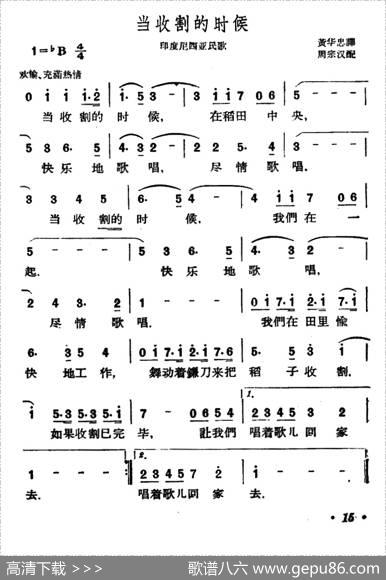 当收割的时候
1=♭B 4/4
印度尼西亚民歌
黃华忠譯
周宗汉配
欢愉、充滿热情
0 i i i·2 i 5 3 - 0 i i 7 0 6
当收割的时候，在稻田中央，
5 3 6· 5 4· 3 2 - 2 2 5· 4 3 - - -
快乐地歌唱，尽情歌唱。
3 3 4 5 6· 5 4 - 0 i i 7 0 6
当收割的时候，我們在一
5 - - - 5 3 6· 5 4· 3 2 -
起，快乐地歌唱，
2 4 3· 2 1 - - -
尽情歌唱。我們在田里愉
6· 3 5 4
快地工作，舞动着鐮刀来把稻子收割。
如果收割已完毕，讓我們唱着歌儿回家
1.
1 - - - 2 3 4 5 5 7 2 1 - - -
2.
去。唱着歌儿回家去。
· 15 ·
高清下载 >>>
歌谱八六 www.gepu86.com